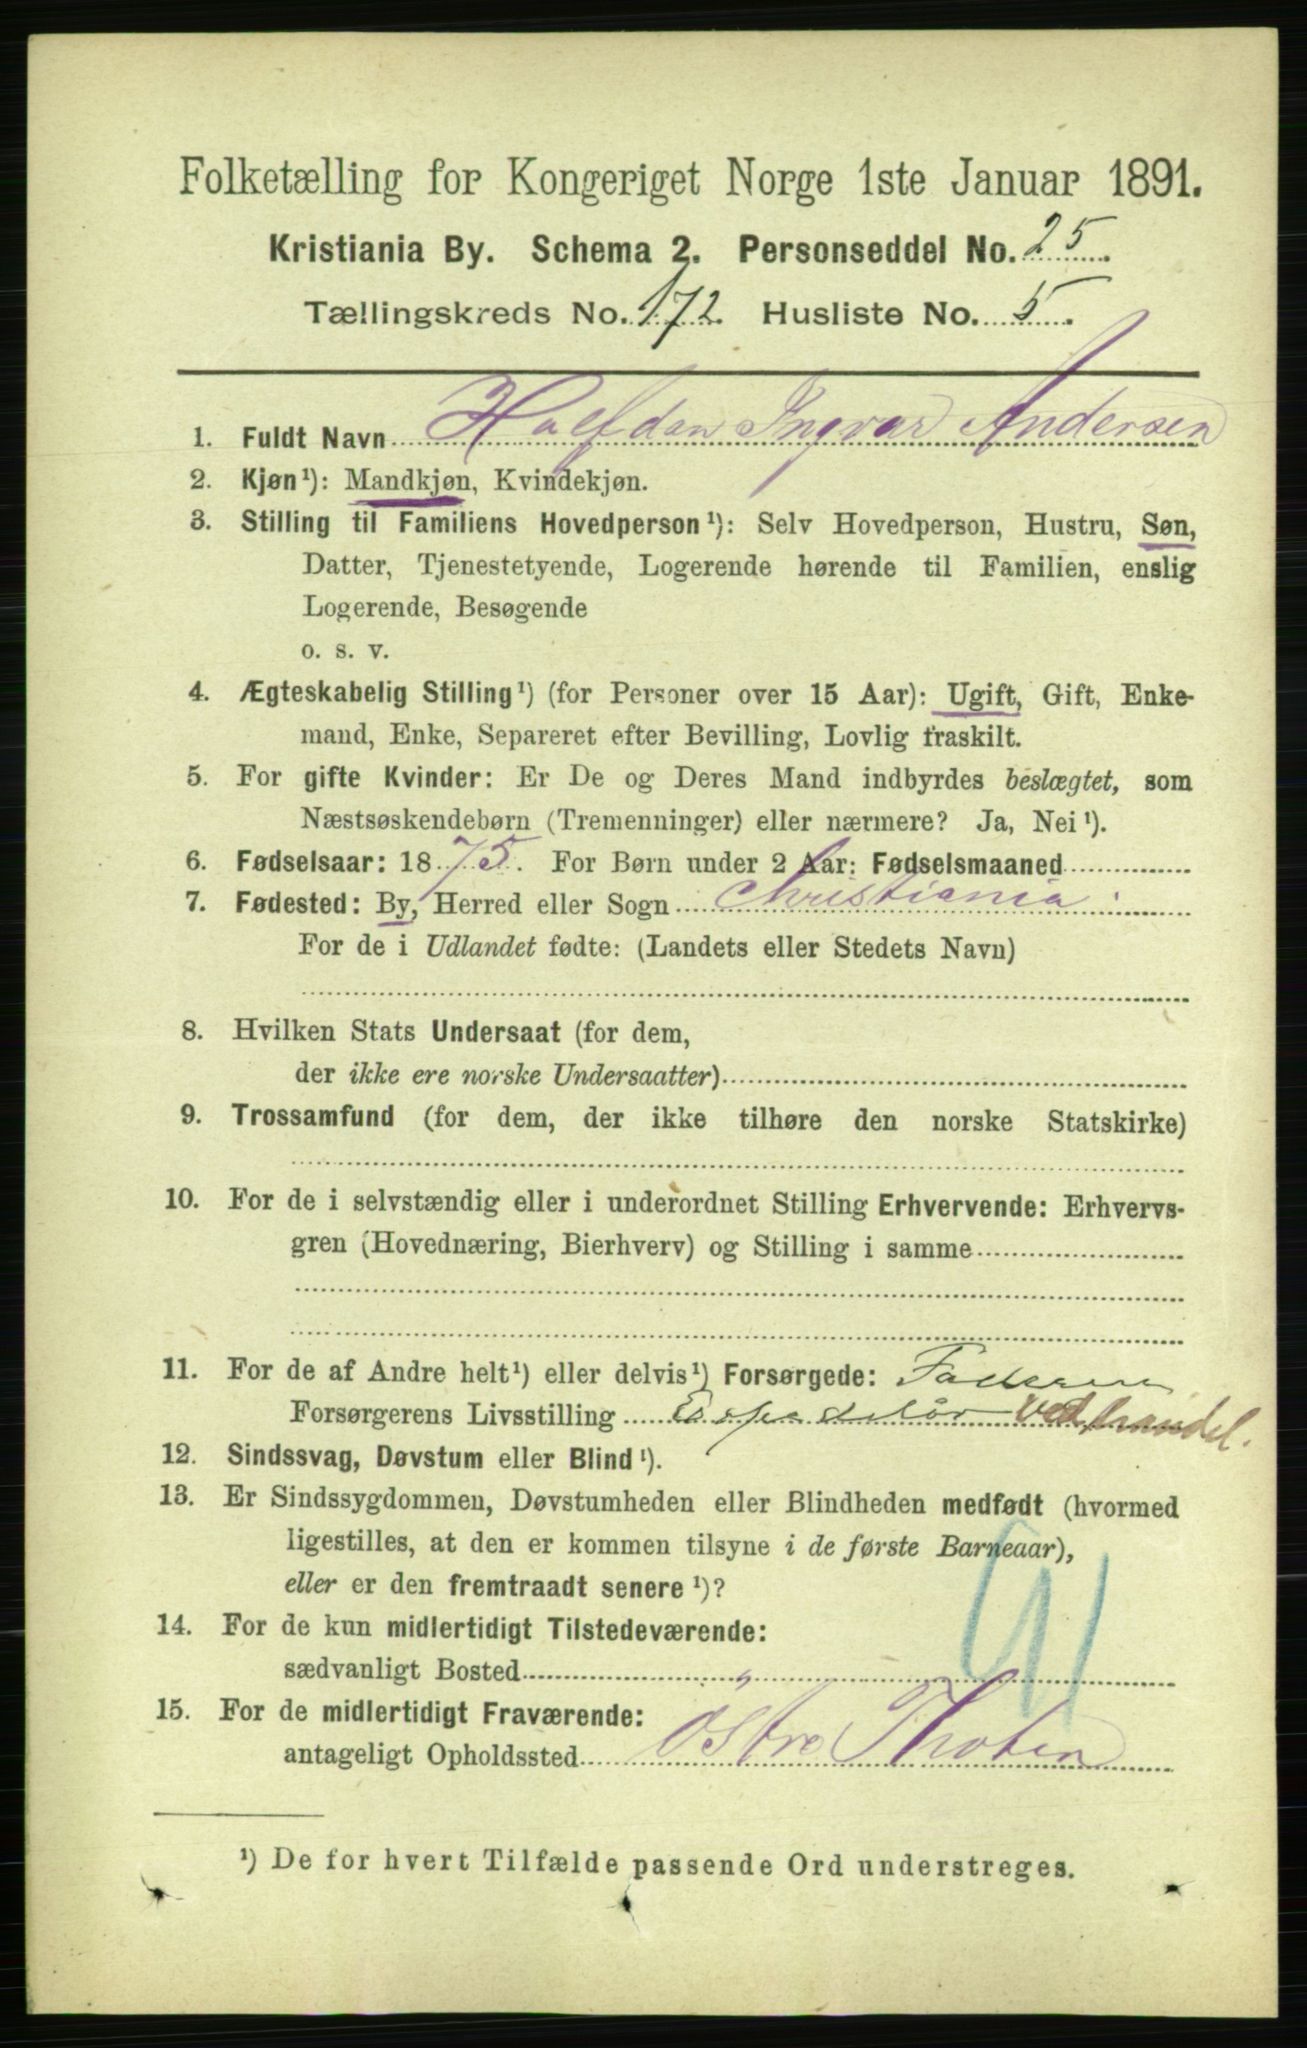 Folketælling for Kongeriget Norge 1ste Januar 1891.
Kristiania By. Schema 2. Personseddel No. 25.
Tællingskreds No. 172. Husliste No. 5.
1. Fuldt Navn Halfdan Ingvar Andersen
2. Kjøn¹): Mandkjøn, Kvindekjøn.
3. Stilling til Familiens Hovedperson¹): Selv Hovedperson, Hustru, Søn,
Datter, Tjenestetyende, Logerende hørende til Familien, enslig
Logerende, Besøgende
o. s. v.
4. Ægteskabelig Stilling¹) (for Personer over 15 Aar): Ugift, Gift, Enke-
mand, Enke, Separeret efter Bevilling, Lovlig fraskilt.
5. For gifte Kvinder: Er De og Deres Mand indbyrdes beslægtet, som
Næstsøskendebørn (Tremenninger) eller nærmere? Ja, Nei¹).
6. Fødselsaar: 1875. For Børn under 2 Aar: Fødselsmaaned
7. Fødested: By, Herred eller Sogn Christiania
For de i Udlandet fødte: (Landets eller Stedets Navn)
8. Hvilken Stats Undersaat (for dem,
der ikke ere norske Undersaatter)
9. Trossamfund (for dem, der ikke tilhøre den norske Statskirke)
10. For de i selvstændig eller i underordnet Stilling Erhvervende: Erhvervs-
gren (Hovednæring, Bierhverv) og Stilling i samme
11. For de af Andre helt¹) eller delvis¹) Forsørgede: Faderen
Forsørgerens Livsstilling Expeditør Vedhandel.
12. Sindssvag, Døvstum eller Blind¹).
13. Er Sindssygdommen, Døvstumheden eller Blindheden medfødt (hvormed
ligestilles, at den er kommen tilsyne i de første Barneaar),
eller er den fremtraadt senere¹)?
14. For de kun midlertidigt Tilstedeværende:
sædvanligt Bosted
15. For de midlertidigt Fraværende:
antageligt Opholdssted Östre Thoten
¹) De for hvert Tilfælde passende Ord understreges.